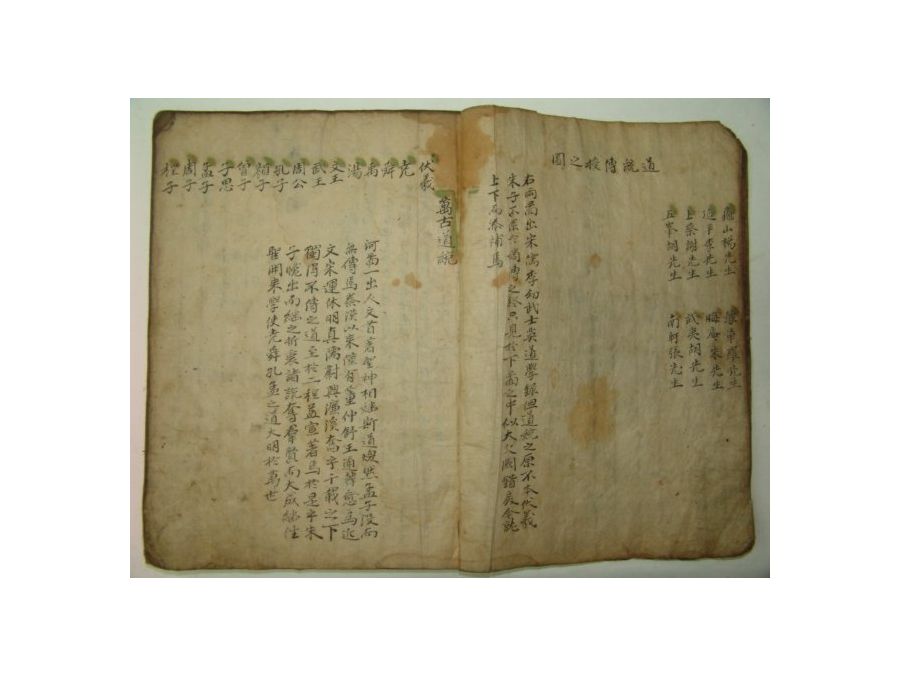 道統傳授之圖
龜山楊先生 豫章羅先生
延平李先生 晦庵朱先生
上蔡謝先生 武夷胡先生
五峯胡先生 南軒張先生
右兩啚出宋儒李幼武士英道學錄但道統之原不本伏羲
朱子不係於嫡傳之只見於下啚之中似大欠闕
上下而叅補焉
萬古道統
伏羲
堯
舜
禹
湯
文王
武王
周公
孔子
顔子
曾子
子思
孟子
周子
程子
河啚一出人文首著聖神相繼斯道燦然孟子没而
無傳焉秦漢以來惟有董仲舒王通韓愈焉
文宋運休明真儒蔚興濂溪奮乎千載之下
獨得不傳之道至於二程益宣著焉於是乎朱
子晩出而繼之折衷諸説羣賢而大成繼往
聖開來學使尭舜孔孟之道大明於萬世